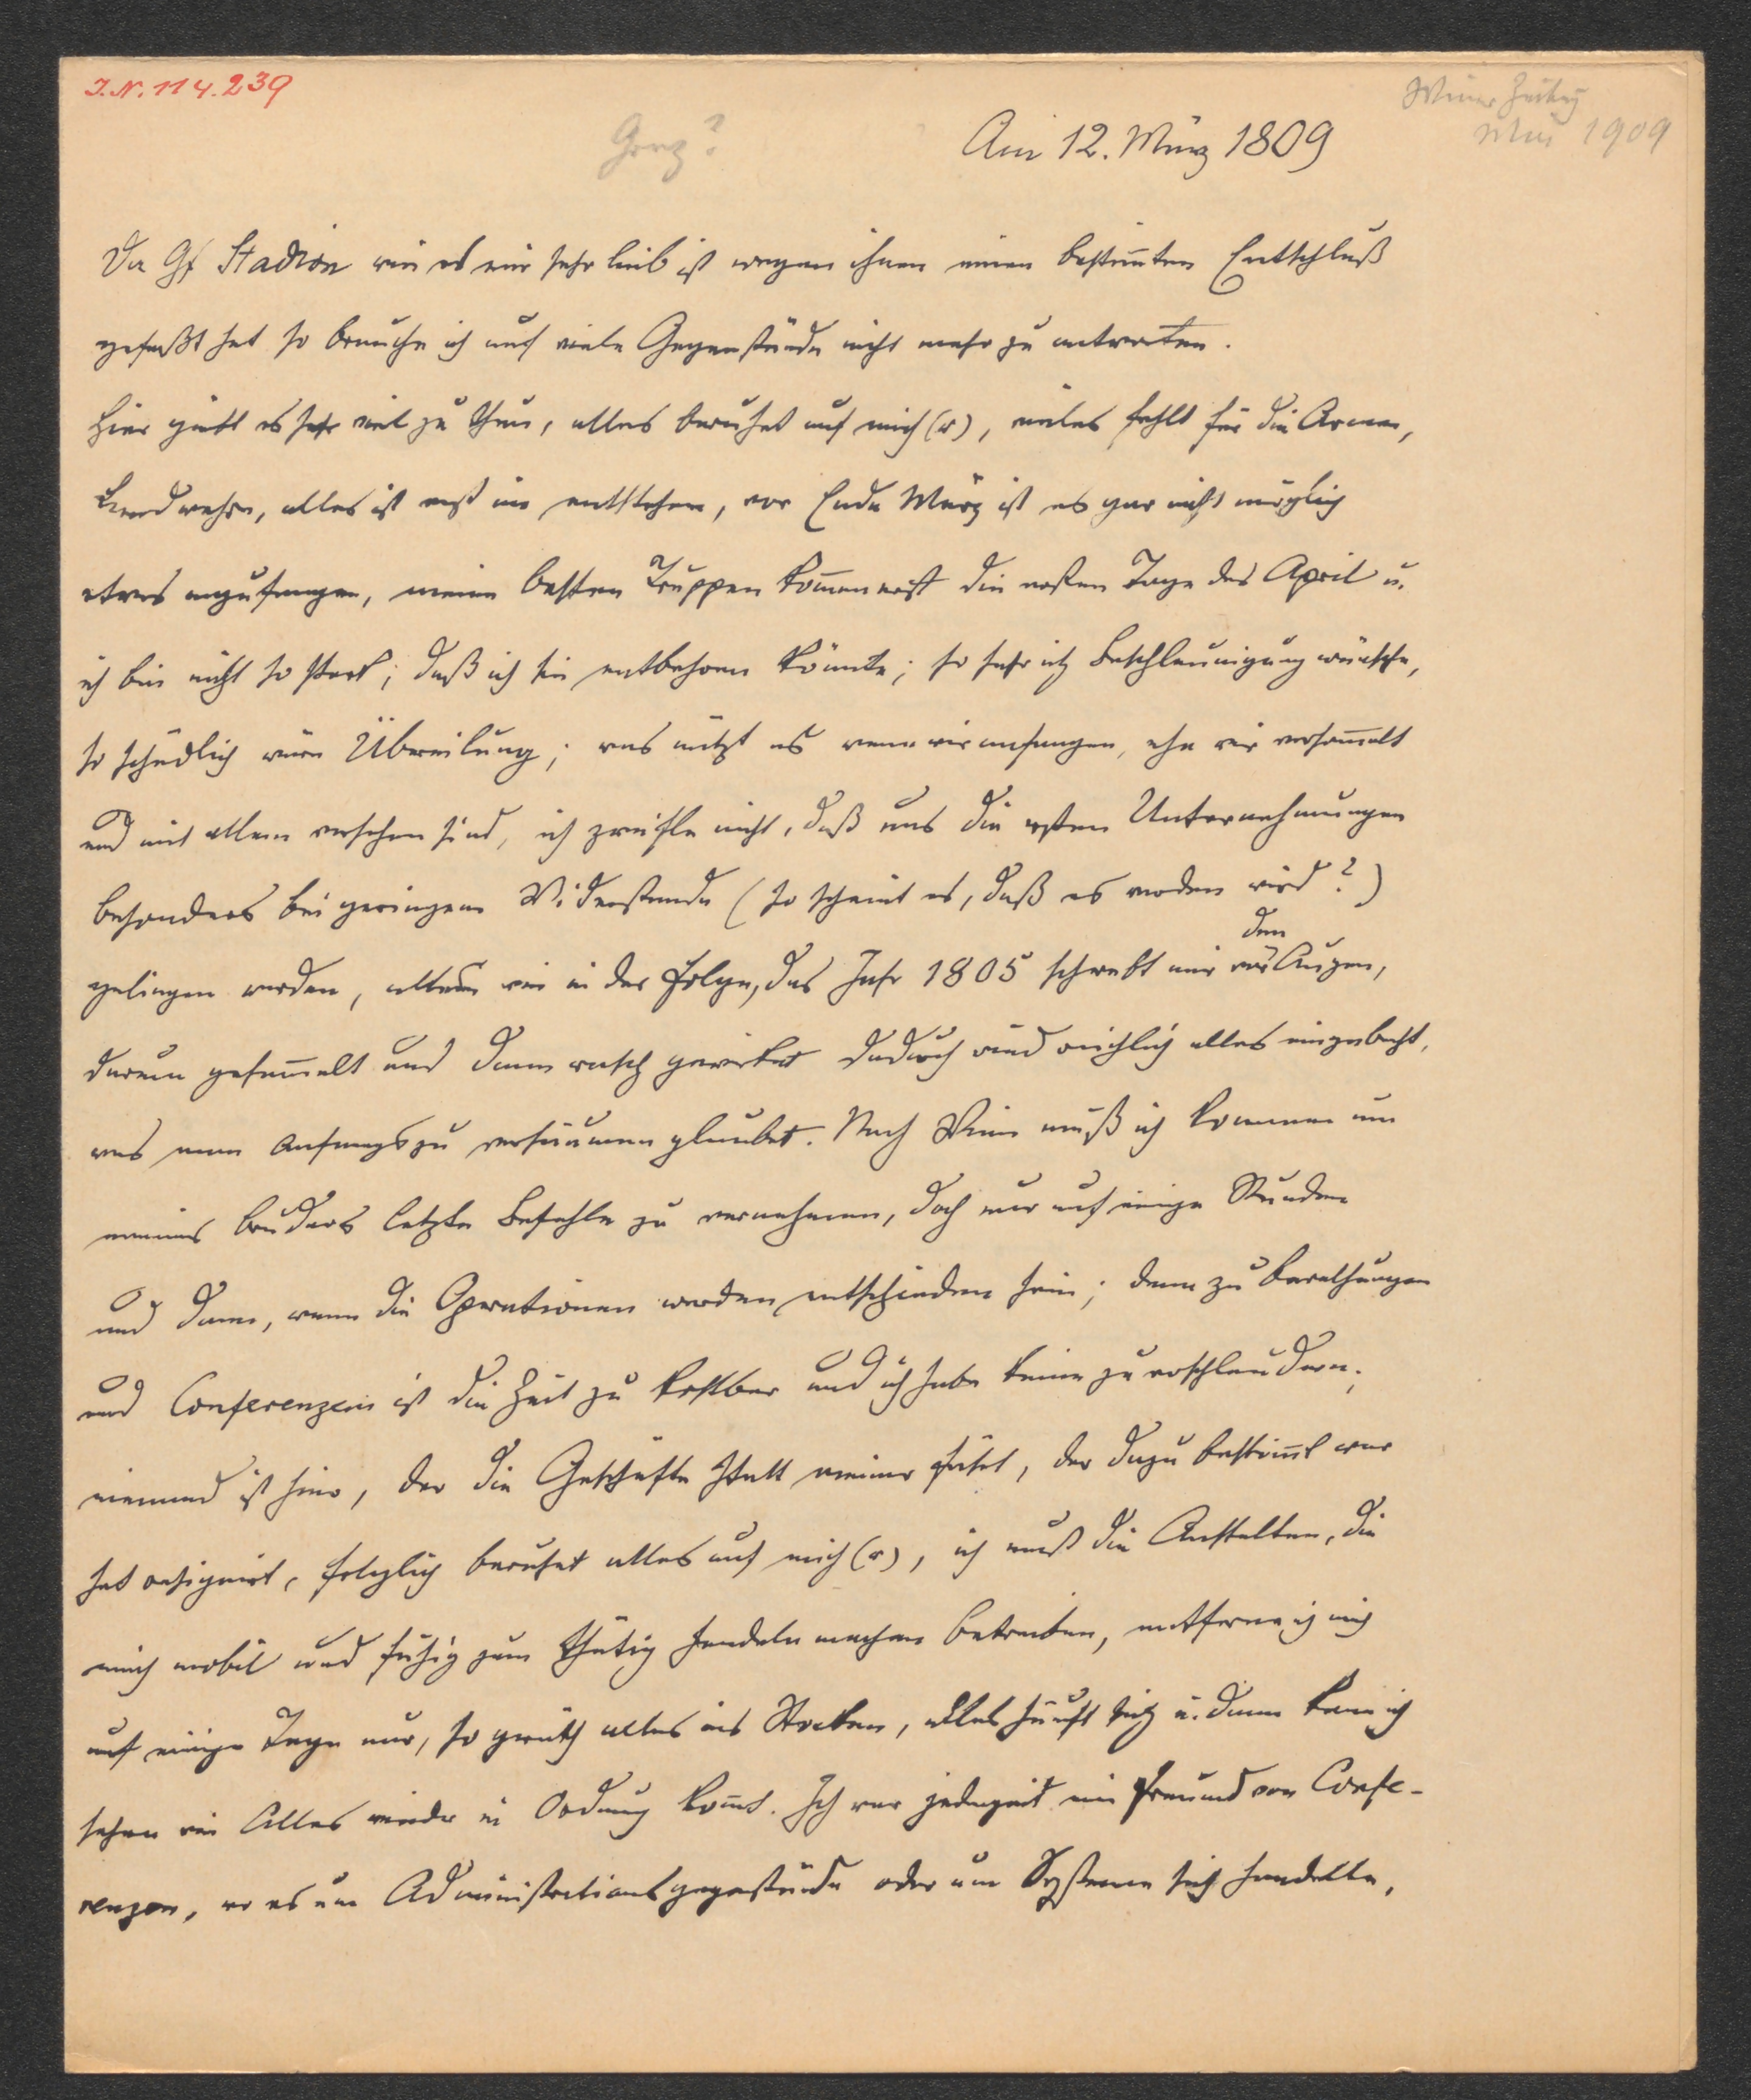 I. N. 114.239
Wiener Zeitung
Mai 1909
Genz?
Am 12. März 1809
Da Gf Stadion wie es mir sehr lieb ist wegen ihnen einen bestim̅ten Entschluß
gefaßt hat so brauche ich auf viele Gegenstände nicht mehr zu antworten.
Hier giebt es sehr viel zu thun, alles beruhet auf mich (r), vieles fehlt für die Armee,
Landwehre, alles ist erst im entstehen, vor Ende März ist es gar nicht möglich
etwas anzufangen, meine besten Truppen kom̅en erst die ersten Tage des April u.
ich bin nicht so stark; daß ich sie entbehren könnte; so sehr ich Beschleunigung wünsche,
so schädlich wäre Übereilung; was nützt es wenn wir anfangen, ehe wir versam̅elt
und mit allem versehen sind, ich zweifle nicht, daß uns die ersten Unternehmungen
besonders bei geringem Widerstande (so scheint es, daß es werden wird?)
gelingen werden, allein wie in der Folge, das Jahr 1805 schwebt mir vor den Augen,
darum gesam̅elt und dann rasch gewirket dadurch wird reichlich alles eingebracht,
was man Anfangs zu versäumen glaubet. Nach Wien muß ich kommen um
meines Bruders letzte Befehle zu vernehmen, doch nur auf einige Stunden
und dann, wenn die Operationen werden entschieden sein; denn zu Berathungen
und Conferenzen ist die Zeit zu kostbar und ich habe keine zu verschleudern;
niemand ist hier, der die Geschäfte statt meiner führt, der dazu bestim̅t war
hat resignirt, folglich beruhet alles auf mich (r), ich muß die Anstalten, die
mich mobil und fähig zum thätig handeln machen betreiben, entferne ich mich
auf einige Tage nur, so geräth alles ins Stocken, alles häuft sich u. dann kann ich
sehen wie Alles wieder in Ordnung kom̅t. Ich war jederzeit ein Freund von Confe-
renzen, wo es um Administrationsgegenstände oder um Systeme sich handelte,